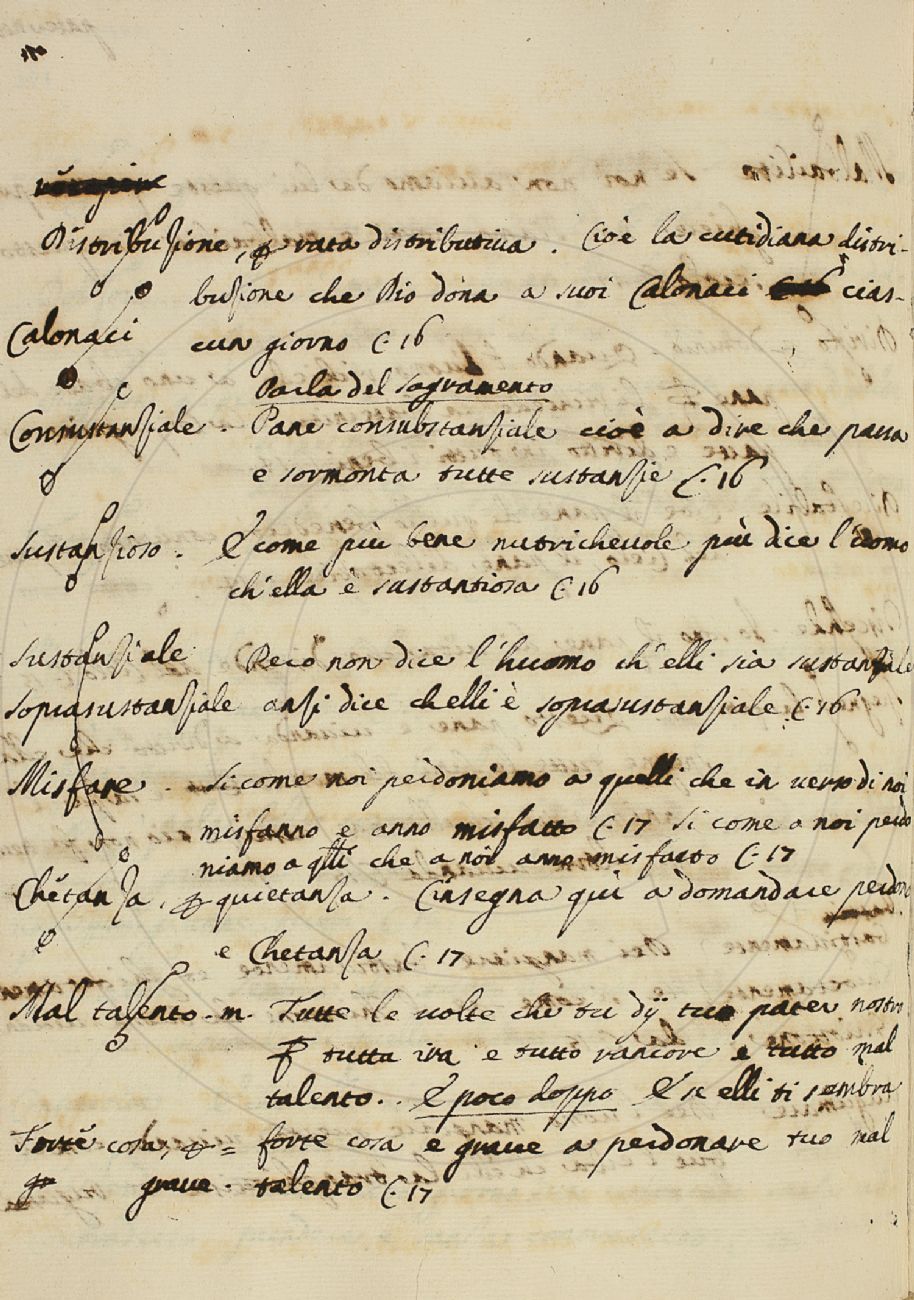 Distribuzione, p rata distributiva. Cioè la cutidiana distri-
buzione che Dio dona a suoi Calonaci cias-
Calonaci cun giorno C. 16
Parla del sagramento
Consustanziale. Pane consubstanziale cioè a dire che passa
e sormonta tutte sustanzie C. 16
Sustanzioso. E come più bene nutrichevole più dice l'uomo
ch'ella è sustantiosa C. 16
Sustanziale Però non dice l'huomo ch'elli sia sustanziale
soprasustanziale anzi dice chelli è soprasustanziale C. 16
Misfare. Si come noi perdoniamo a quelli che in verso di noi
misfanno e anno misfatto C. 17 Si come a noi perdo
niamo a qlli che a noi anno misfatto C. 17
Chetanza, p quietanza. C'insegna qui a domandare perdono
e Chetanza C. 17
Mal talento. m. Tutte le volte che tu dÿ tuo pater nostro
p tutta ira e tutto rancore e tutto mal
talento.. E poco doppo E se elli ti sembra
Forte cosa, p = forte cosa e grave a perdonare tuo mal
grave. talento C. 17